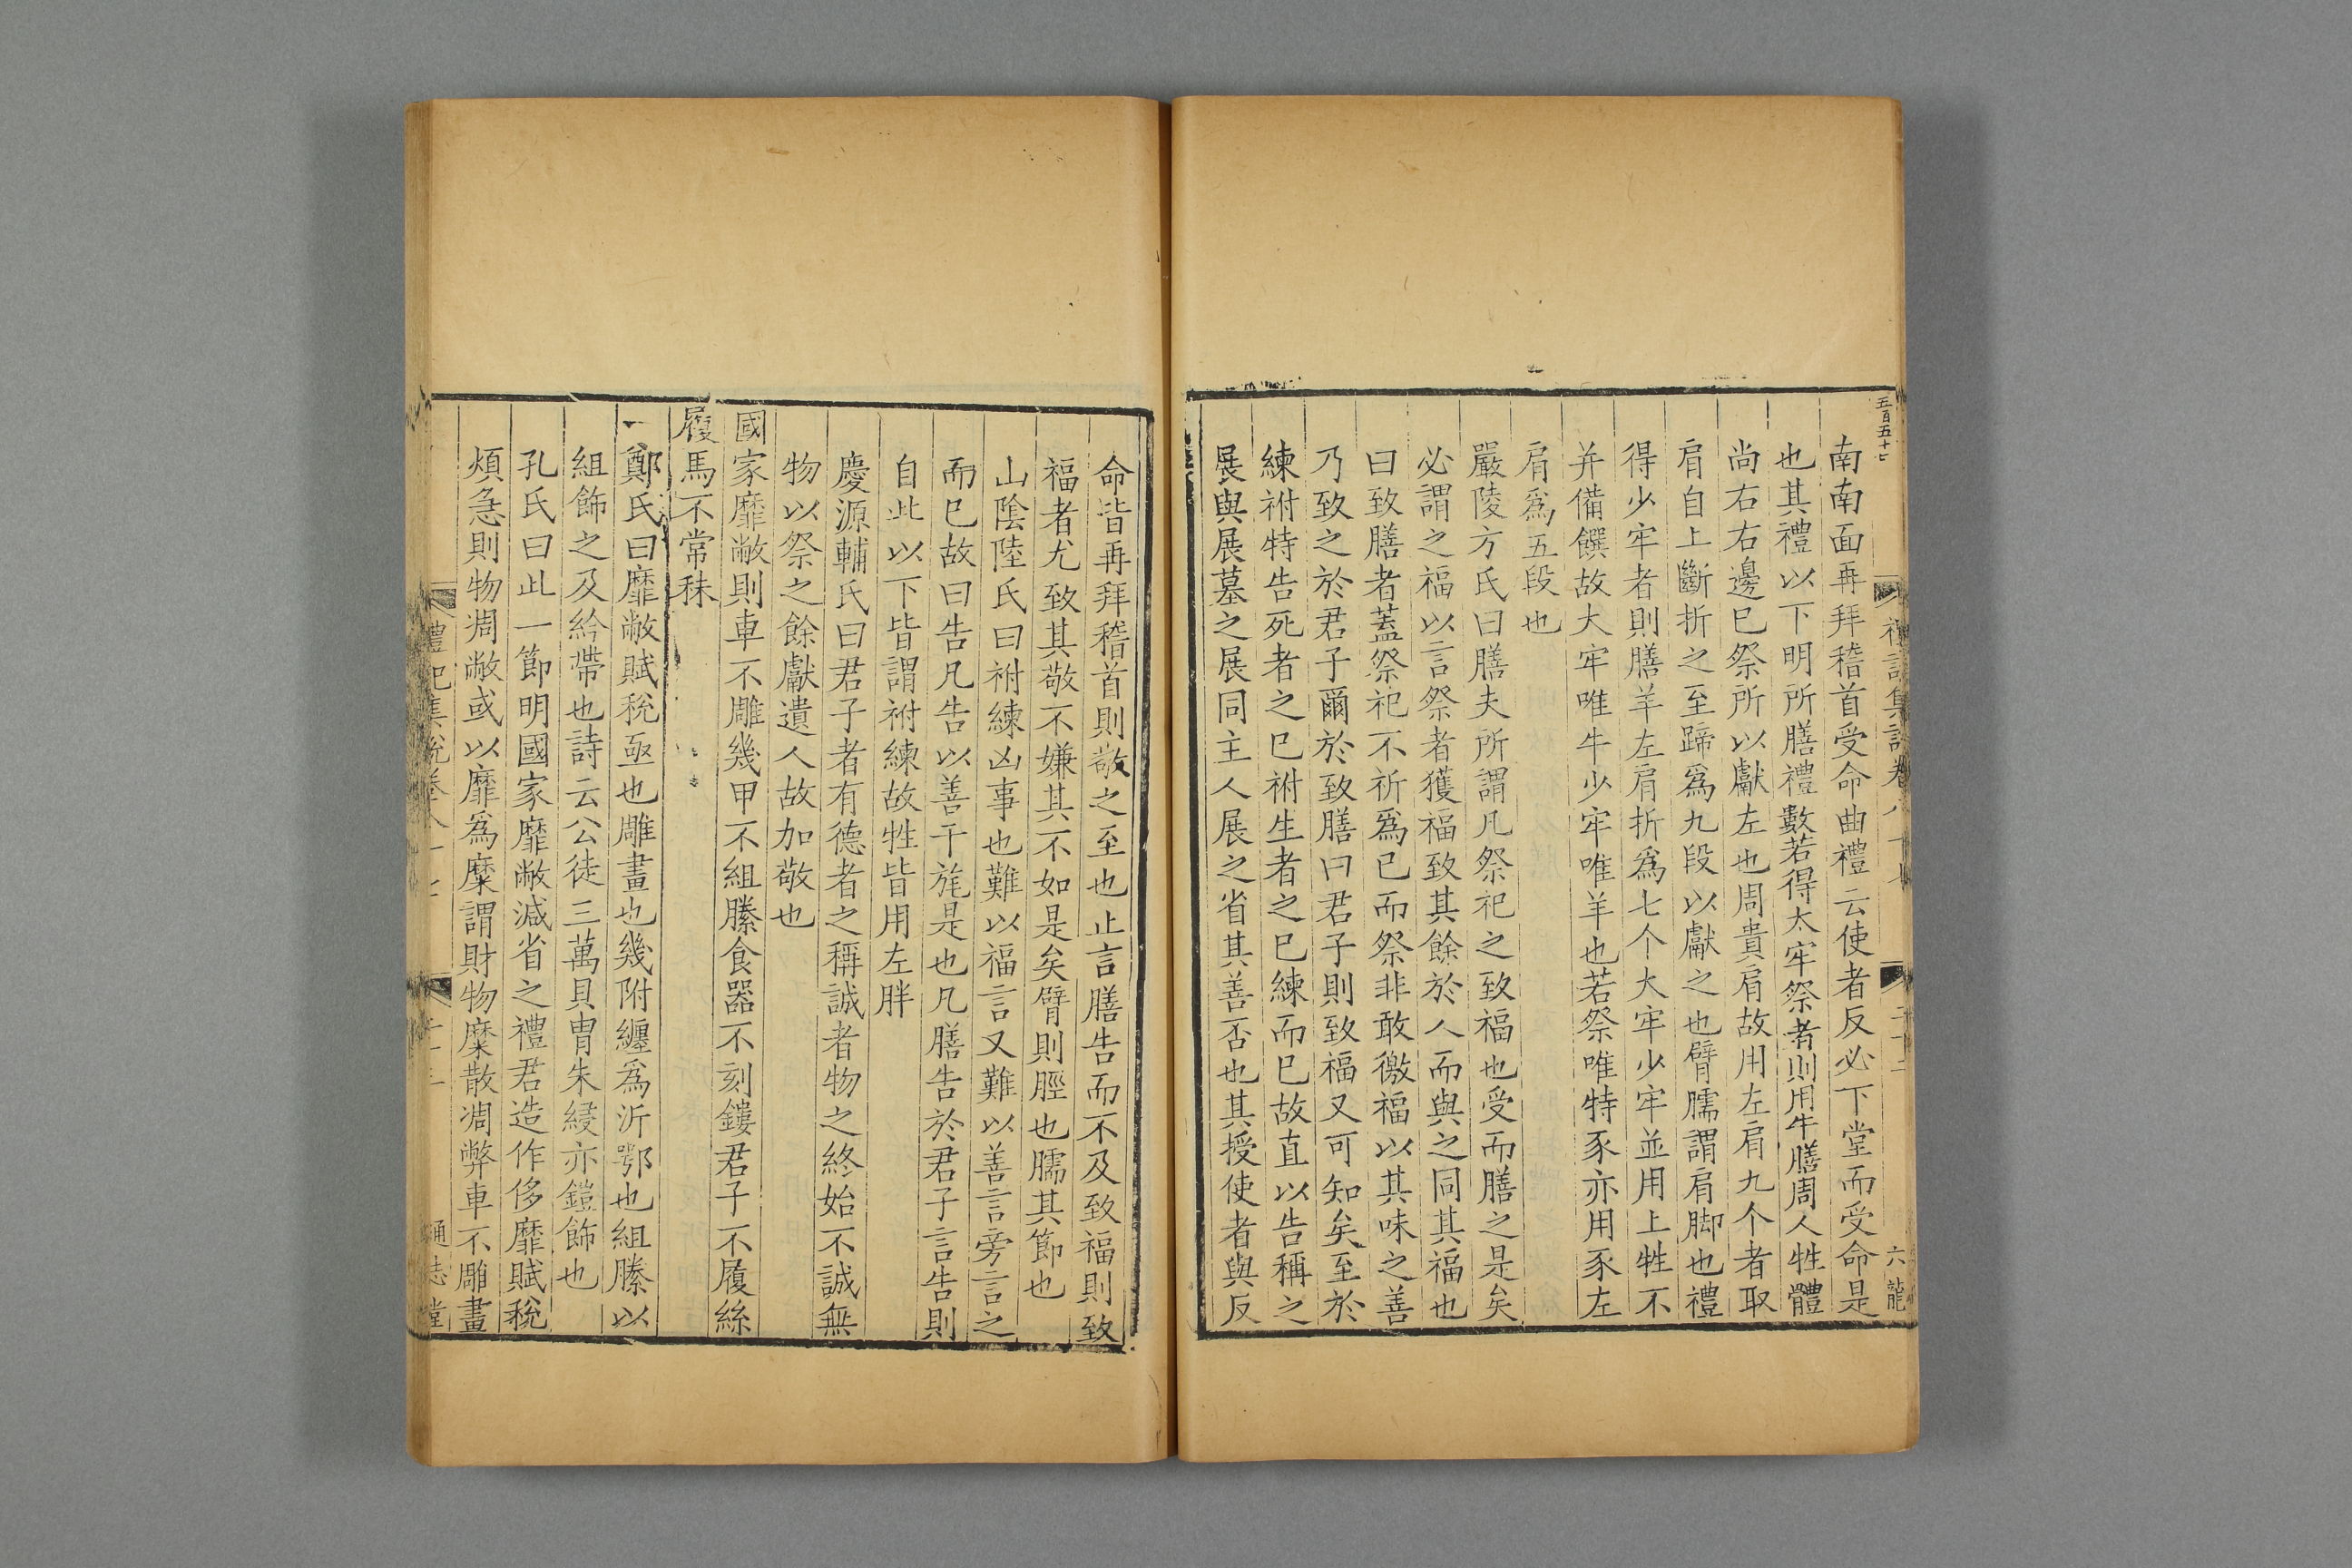 五百五十七
南南面再拜稽首受命曲禮云使者反必下堂而受命是
也其禮以下明所膳禮數若得太牢祭者則用牛膳周人牲體
尚右右邊已祭所以獻左也周貴肩故用左肩九个者取
肩自上斷折之至蹄爲九段以獻之也臂臑謂肩脚也禮
得少牢者則膳羊左肩折爲七个大牢少牢並用上牲不
并備饌故大牢唯牛少牢唯羊也若祭唯特豕亦用豕左
肩爲五段也
嚴陵方氏曰膳夫所謂凡祭祀之致福也受而膳之是矣
必謂之福以言祭者獲福致其餘於人而與之同其福也
曰致膳者蓋祭祀不祈爲已而祭非敢徼福以其味之善
乃致之於君子爾於致膳曰君子則致福又可知矣至於
練祔特告死者之已祔生者之已練而已故直以告稱之
展與展墓之展同主人展之省其善否也其授使者與反
命皆再拜稽首則敬之至也止言膳告而不及致福則致
福者尤致其敬不嫌其不如是矣臂則脛也臑其節也
山陰陸氏曰祔練凶事也難以福言又難以善言旁言之
而已故曰告凡告以善干旄是也凡膳告於君子言告則
自此以下皆謂祔練故牲皆用左胖
慶源輔氏曰君子者有德者之稱誠者物之終始不誠無
物以祭之餘獻遺人故加敬也
國家靡敝則車不雕幾甲不組縢食器不刻鏤君子不履絲
屨馬不常秣
鄭氏曰靡敝賦稅亟也雕畫也幾附纏爲沂鄂也組縢以
組飾之及紟帶也詩云公徒三萬貝冑朱綅亦鎧飾也
孔氏曰此一節明國家靡敝減省之禮君造作侈靡賦稅
煩急則物凋敝或以靡爲糜謂財物糜散凋弊車不雕畫
禮記集說卷八十七
通志堂